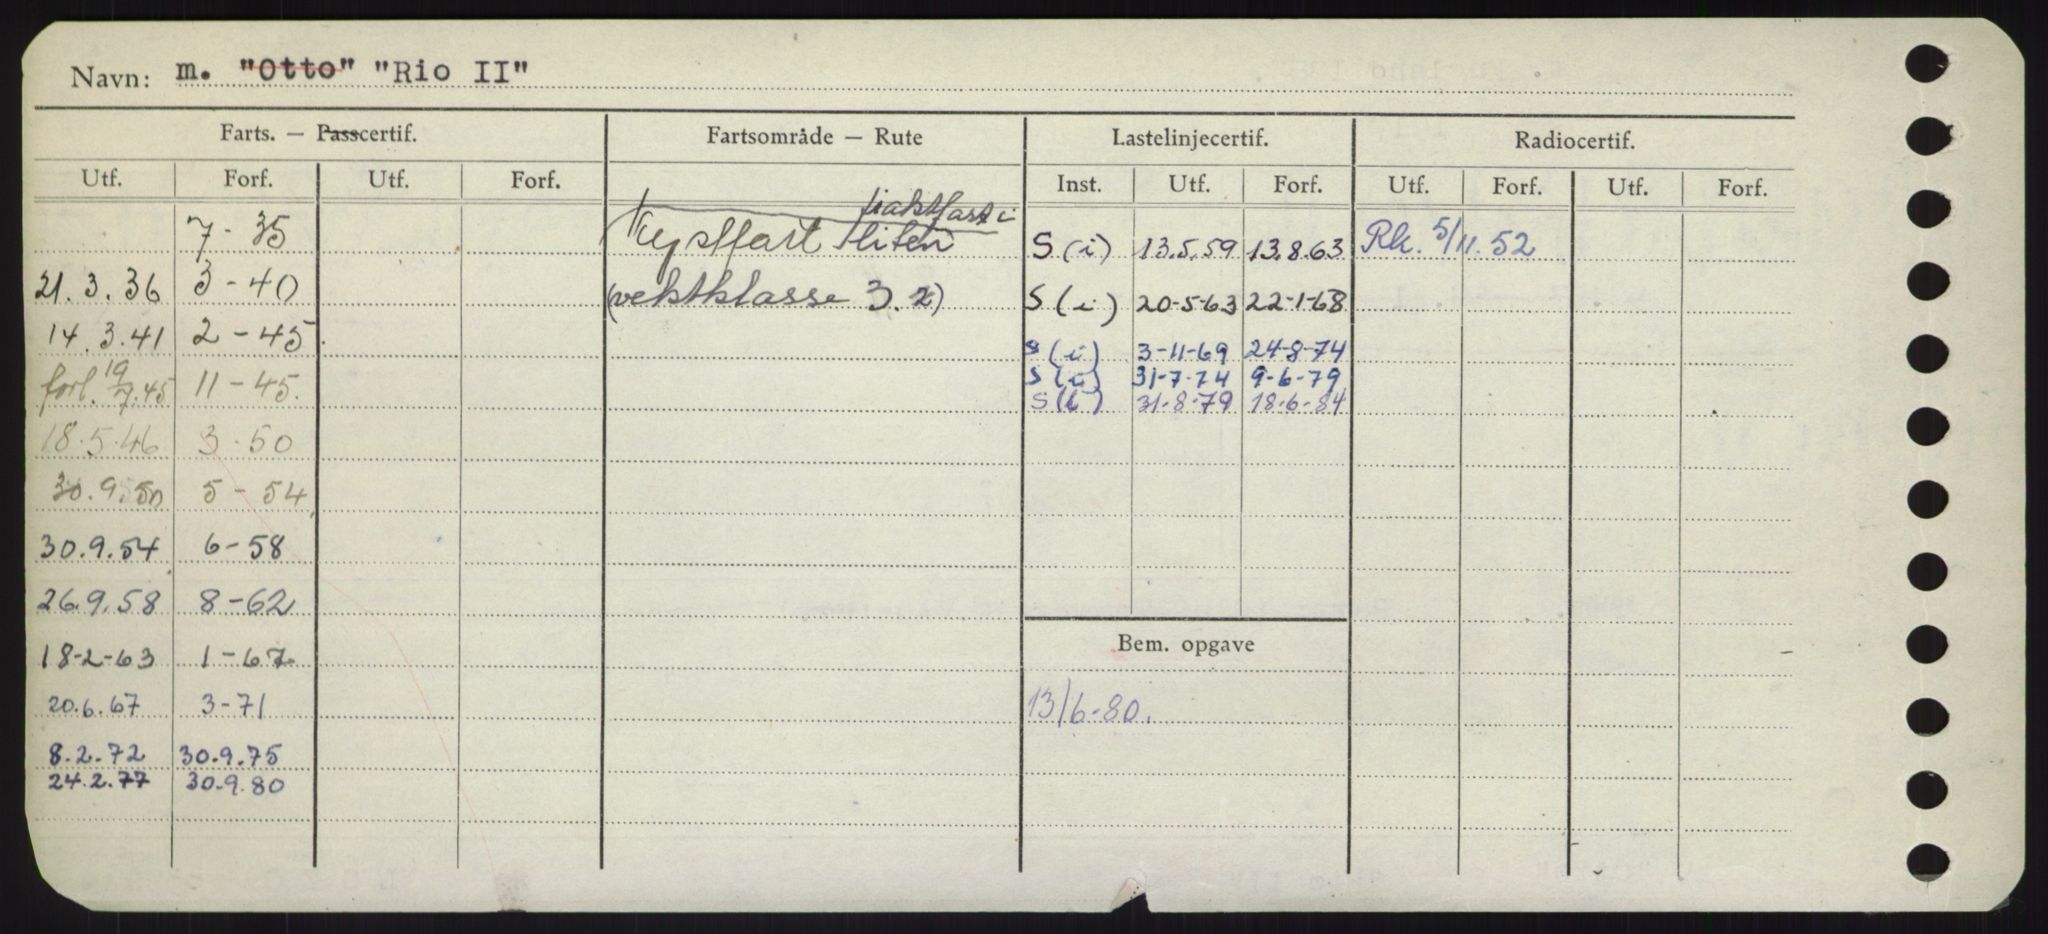 Navn: m. "Otto" "Rio II"
Farts. — Passcertif. Fartsområde — Rute Lastelinjecertif. Radiocertif.
Utf. Forf. Utf. Forf. Inst. Utf. Forf. Utf. Forf. Utf. Forf.
fraktfart i
7-35 Kystfart liten S (i) 13.5.59 13.8.63 Rk. 5/11.52
21.3.36 3-40 (vektklasse 3.2) S (i) 20-5-63 22-1-68
14.3.41 2-45 S (i) 3-11-69 24-8-74
forl. 19/7.45 11-45. S (i) 31-7-74 9-6-79
S (i) 31-8-79 18-6-84
18.5.46 3-50
30.9.50 5-54
30.9.54 6-58
26.9.58 8-62
18-2-63 1-67 Bem. opgave
20.6.67 3-71 13/6-80.
8.2.72 30.9.75
24.2.77 30.9.80